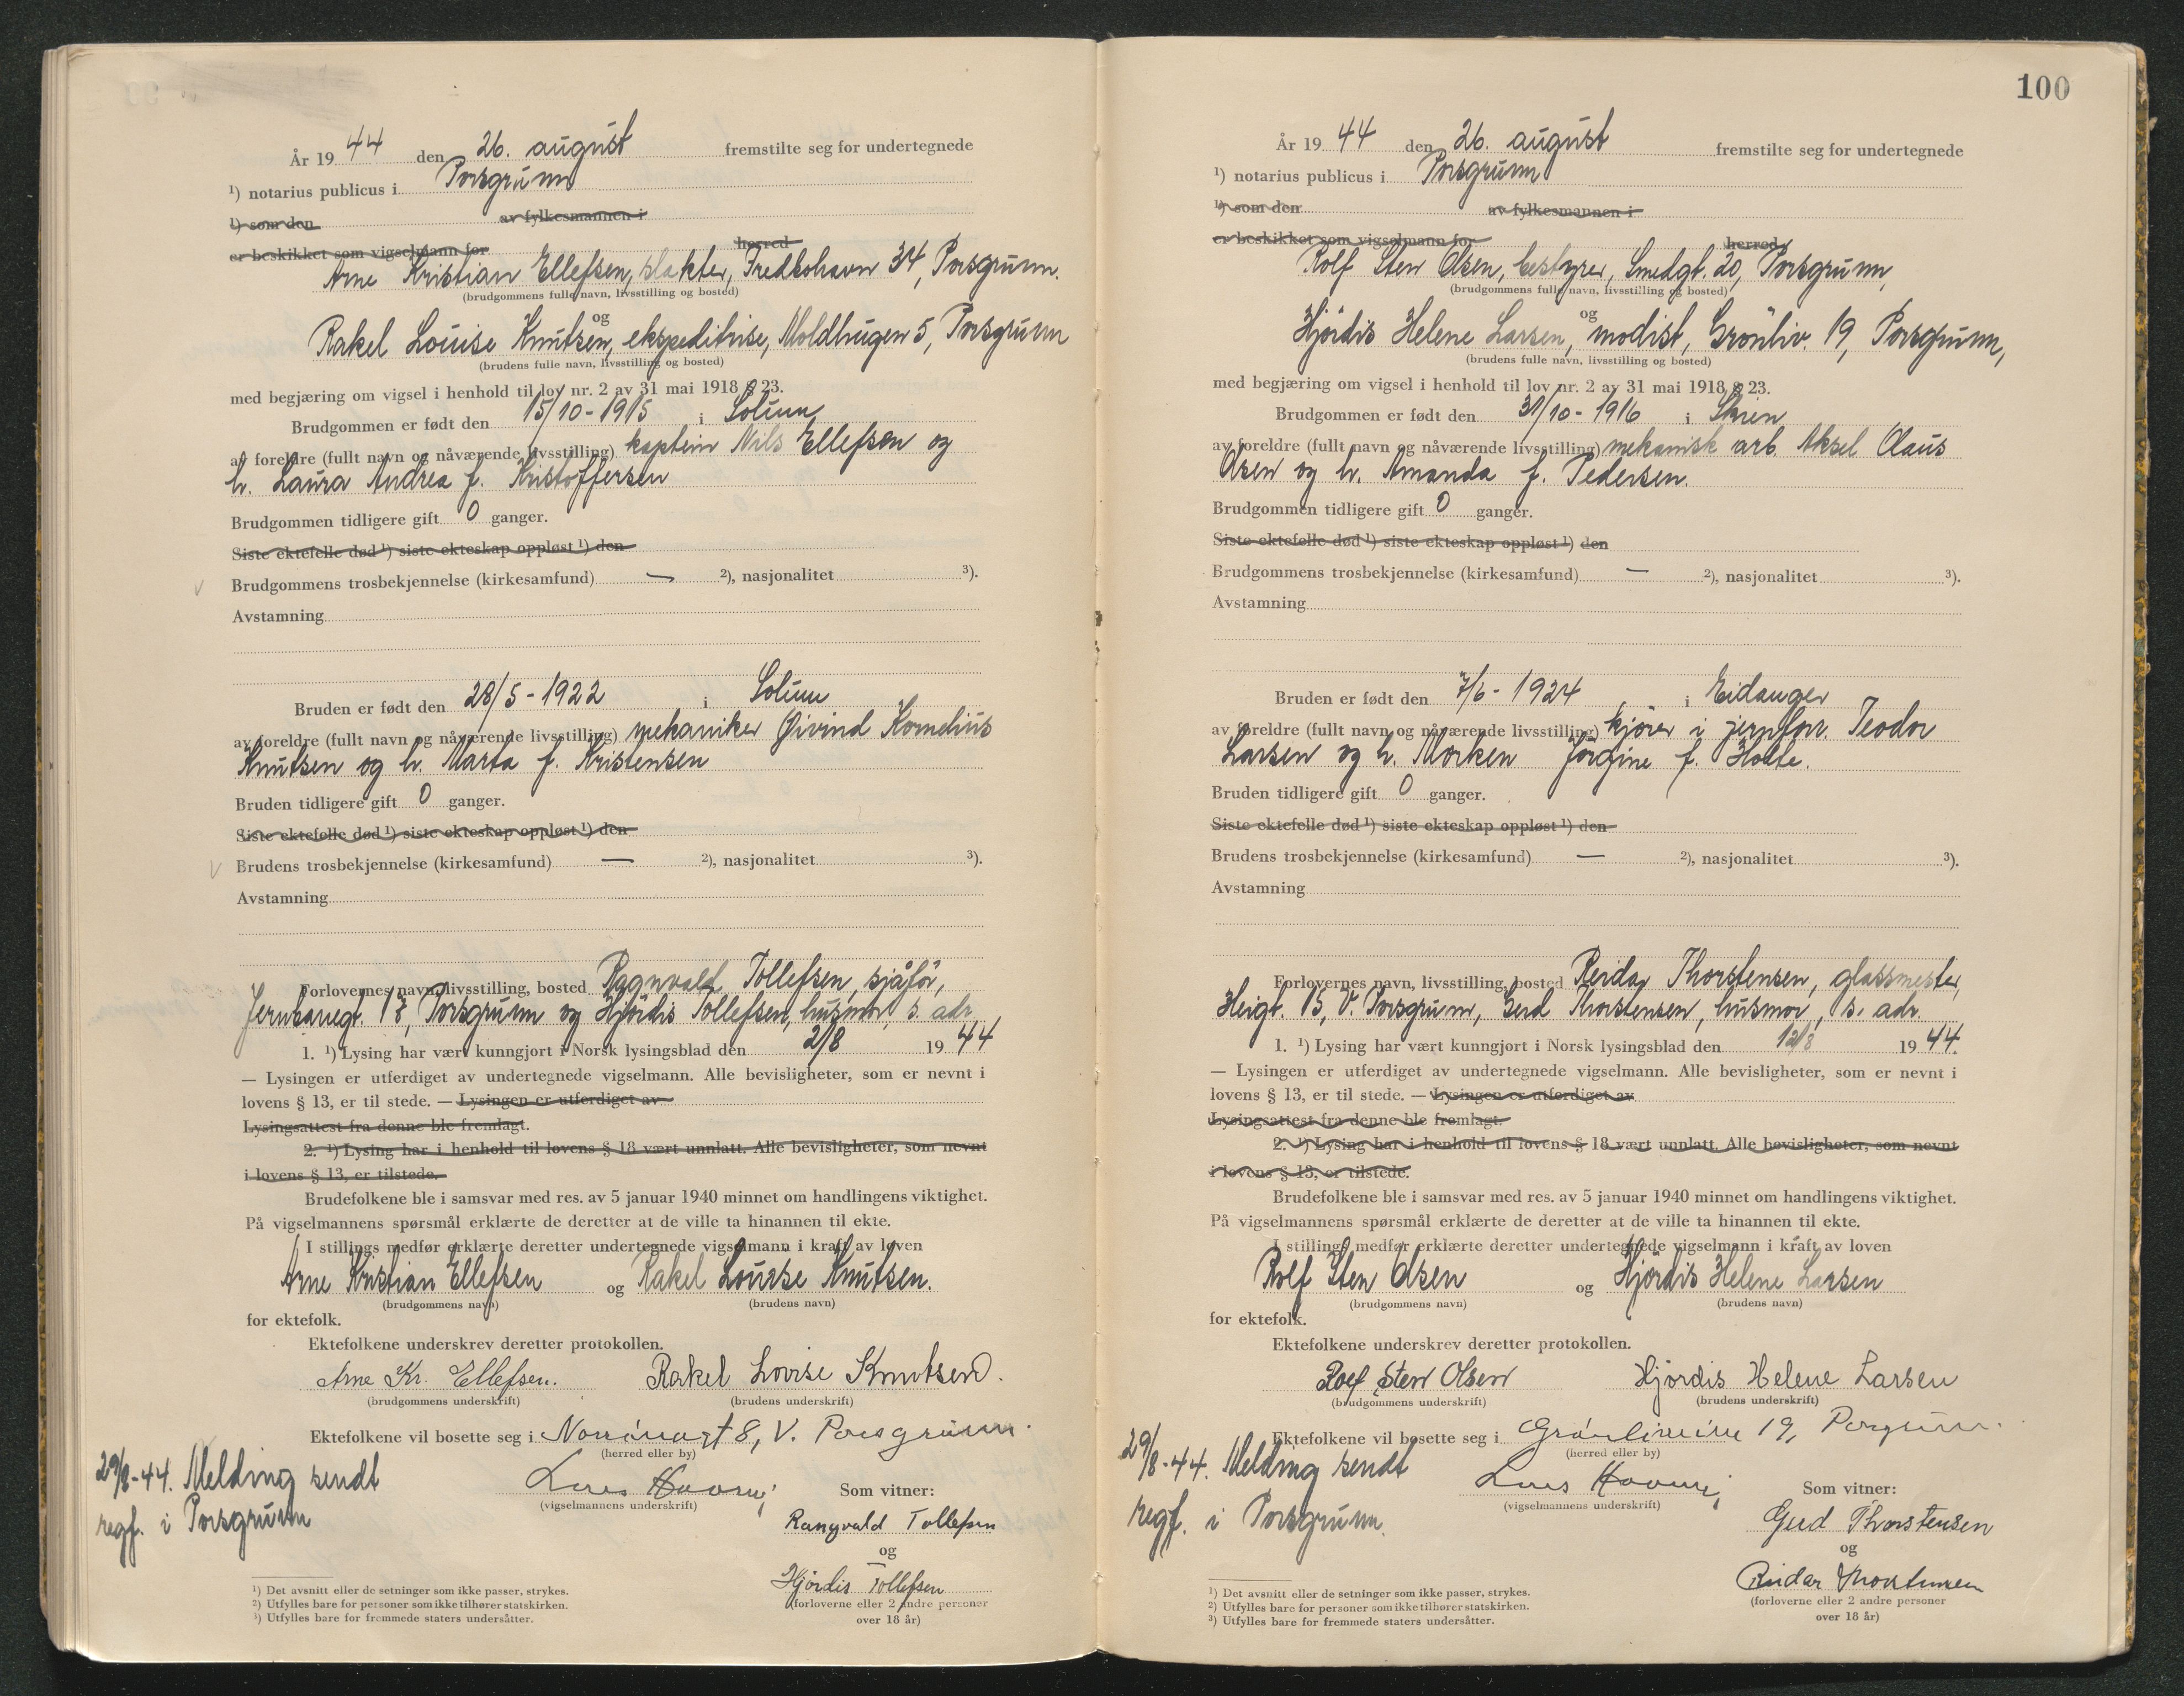 År 19 44 den 26. august fremstilte seg for undertegnede
¹) notarius publicus i Porsgrunn
¹) som den av fylkesmannen i
er beskikket som vigselmann for herred
Arne Kristian Ellefsen, slakter, Fredbohavn 34, Porsgrunn.
(brudgommens fulle navn, livsstilling og bosted)
og
Rakel Louise Knutsen, ekspeditrise, Moldhaugen 5, Porsgrunn
(brudens fulle navn, livsstilling og bosted)
med begjæring om vigsel i henhold til lov nr. 2 av 31 mai 1918 § 23.
Brudgommen er født den 15/10-1915 i Solum
av foreldre (fullt navn og nåværende livsstilling) kaptein Nils Ellefsen og
h. Laura Andrea f. Kristoffersen
Brudgommen tidligere gift 0 ganger.
Siste ektefelle død ¹) siste ekteskap oppløst ¹) den
Brudgommens trosbekjennelse (kirkesamfund) — ²), nasjonalitet ³).
Avstamning
Bruden er født den 28/5-1922 i Solum
av foreldre (fullt navn og nåværende livsstilling) mekaniker Øivind Kornelius
Knutsen og h. Marta f. Kristensen
Bruden tidligere gift 0 ganger.
Siste ektefelle død ¹) siste ekteskap oppløst ¹) den
Brudens trosbekjennelse (kirkesamfund) — ²), nasjonalitet ³).
Avstamning
Forlovernes navn, livsstilling, bosted Ragnvald Tollefsen, sjåfør,
Jernbanegt. Porsgrunn og Hjördis Tollefsen, husmor, s. adr.
1. ¹) Lysing har vært kunngjort i Norsk lysingsblad den 2/8 19 44
— Lysingen er utferdiget av undertegnede vigselmann. Alle bevisligheter, som er nevnt i
lovens § 13, er til stede. — Lysingen er utferdiget av
Lysingsattest fra denne ble fremlagt.
2. ¹) Lysing har i henhold til lovens § 18 vært unnlatt. Alle bevisligheter, som nevnt
i lovens § 13, er tilstede.
Brudefolkene ble i samsvar med res. av 5 januar 1940 minnet om handlingens viktighet.
På vigselmannens spørsmål erklærte de deretter at de ville ta hinannen til ekte.
I stillings medfør erklærte deretter undertegnede vigselmann i kraft av loven
Arne Kristian Ellefsen og Rakel Louise Knutsen.
(brudgommens navn) (brudens navn)
for ektefolk.
Ektefolkene underskrev deretter protokollen.
Arne Kr. Ellefsen. Rakel Lovise Knutsen.
(brudgommens underskrift) (brudens underskrift)
Ektefolkene vil bosette seg i 8, V. Porsgrunn.
(herred eller by)
29/8-44. Melding sendt
regf. i Porsgrunn
Lars
(vigselmannens underskrift)
Som vitner:
Rangvald Tollefsen
og
Hjördis Tollefsen
(forloverne eller 2 andre personer
over 18 år)
¹) Det avsnitt eller de setninger som ikke passer, strykes.
²) Utfylles bare for personer som ikke tilhører statskirken.
³) Utfylles bare for fremmede staters undersåtter.
100
År 19 44 den 26. august fremstilte seg for undertegnede
¹) notarius publicus i Porsgrunn
¹) som den av fylkesmannen i
er beskikket som vigselmann for herred
Rolf Sten Olsen, bestyrer, Smedgt. 20, Porsgrunn,
(brudgommens fulle navn, livsstilling og bosted)
og
Hjördis Helene Larsen, modist, Grönliv. 19, Porsgrunn,
(brudens fulle navn, livsstilling og bosted)
med begjæring om vigsel i henhold til lov nr. 2 av 31 mai 1918 § 23.
Brudgommen er født den 31/10-1916 i Skien
av foreldre (fullt navn og nåværende livsstilling) mekanisk arb. Aksel Olaus
Olsen og h. Amanda f. Pedersen.
Brudgommen tidligere gift 0 ganger.
Siste ektefelle død ¹) siste ekteskap oppløst ¹) den
Brudgommens trosbekjennelse (kirkesamfund) — ²), nasjonalitet ³).
Avstamning
Bruden er født den 7/6-1924 i Eidanger
av foreldre (fullt navn og nåværende livsstilling) kjörer i jernforr. Teodor
Larsen og h. Morken Jörgine f. Holte.
Bruden tidligere gift 0 ganger.
Siste ektefelle død ¹) siste ekteskap oppløst ¹) den
Brudens trosbekjennelse (kirkesamfund) — ²), nasjonalitet ³).
Avstamning
Forlovernes navn, livsstilling, bosted Reidar Thorstensen, glassmester,
Heigt. 15, V. Porsgrunn, Gerd Thorstensen, husmor, s. adr.
1. ¹) Lysing har vært kunngjort i Norsk lysingsblad den 12/8 19 44.
— Lysingen er utferdiget av undertegnede vigselmann. Alle bevisligheter, som er nevnt i
lovens § 13, er til stede. — Lysingen er utferdiget av
Lysingsattest fra denne ble fremlagt.
2. ¹) Lysing har i henhold til lovens § 18 vært unnlatt. Alle bevisligheter, som nevnt
i lovens § 13, er tilstede.
Brudefolkene ble i samsvar med res. av 5 januar 1940 minnet om handlingens viktighet.
På vigselmannens spørsmål erklærte de deretter at de ville ta hinannen til ekte.
I stillings medfør erklærte deretter undertegnede vigselmann i kraft av loven
Rolf Sten Olsen og Hjördis Helene Larsen
(brudgommens navn) (brudens navn)
for ektefolk.
Ektefolkene underskrev deretter protokollen.
Rolf Sten Olsen Hjørdis Helene Larsen
(brudgommens underskrift) (brudens underskrift)
Ektefolkene vil bosette seg i Grönliveien 19, Porsgrunn.
(herred eller by)
29/8-44. Melding sendt
regf. i Porsgrunn.
Lars
(vigselmannens underskrift)
Som vitner:
Gerd Thorstensen
og
Reidar Thorstensen
(forloverne eller 2 andre personer
over 18 år)
¹) Det avsnitt eller de setninger som ikke passer, strykes.
²) Utfylles bare for personer som ikke tilhører statskirken.
³) Utfylles bare for fremmede staters undersåtter.